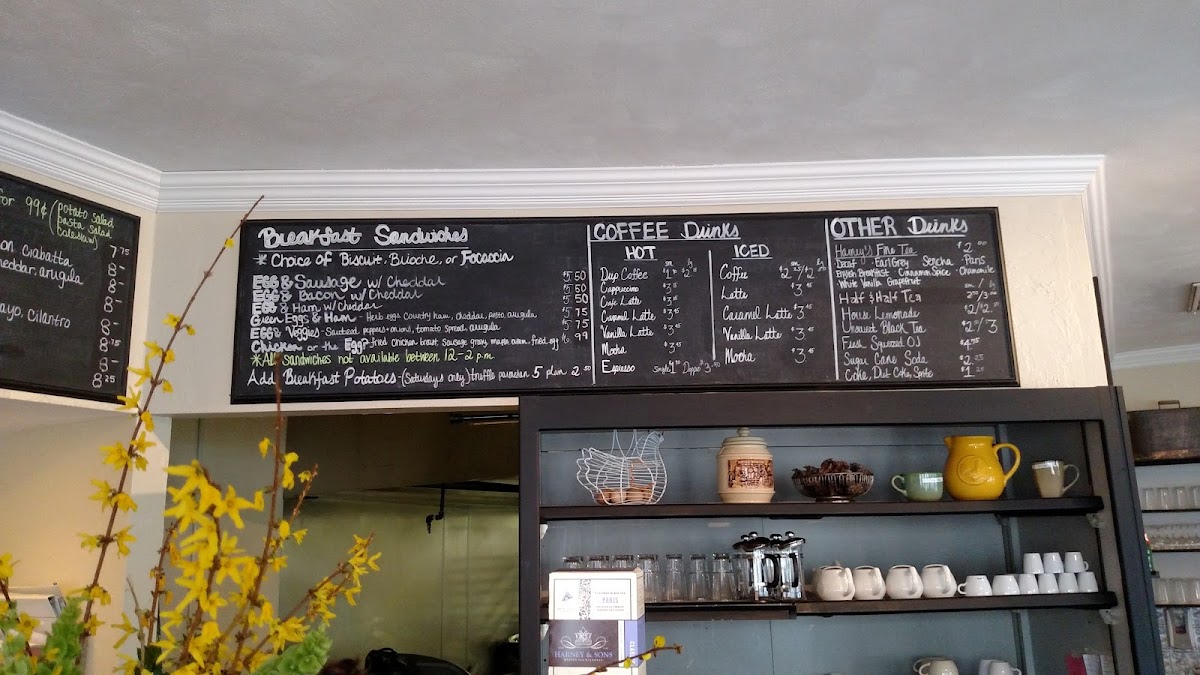 for 99¢ (potato salad
pasta salad
coleslaw)
7.75
Ciabatta 8-
cheddar, arugula 8-
8-
mayo, Cilantro 8-
8.75
8-
8-
8.25
Breakfast Sandwiches
* Choice of Biscuit, Brioche, or Focaccia
EGG & Sausage w/ Cheddar $5.50
EGG & Bacon w/ Cheddar 5.50
EGG & Ham w/ Cheddar 5.50
Green Eggs & Ham - Herb eggs, Country ham, cheddar, pesto, arugula 5.75
EGG & Veggies - Sauteed peppers + onions, tomato spread, arugula 5.75
Chicken or the EGG? fried chicken breast, sausage gravy, fried egg 6.99
*All sandwiches not available between 12-2 pm
Add Breakfast Potatoes - (Saturdays only) truffle parmesan 5 plain 2.50
COFFEE Drinks
HOT
sm lg
Drip Coffee
Cappuccino $3.45
Cafe Latte $3.45
Caramel Latte $3.45
Vanilla Latte $3.45
Mocha $3.45
Espresso Single Doppio
ICED
sm lg
Coffee
Latte $3.45
Caramel Latte $3.45
Vanilla Latte $3.45
Mocha $3.45
OTHER Drinks
Harney's Fine Tea $2.00
Decaf - Earl Grey Sencha - Paris
English Breakfast Cinnamon Spice - Chamomile
White Vanilla Grapefruit
sm / lg
Half & Half Tea
House Lemonade
Unsweet Black Tea
Fresh Squeezed OJ $4.75
Sugar Cane Soda $2.25
Coke, Diet Coke, Sprite $1.25
PARIS
HARNEY & SONS